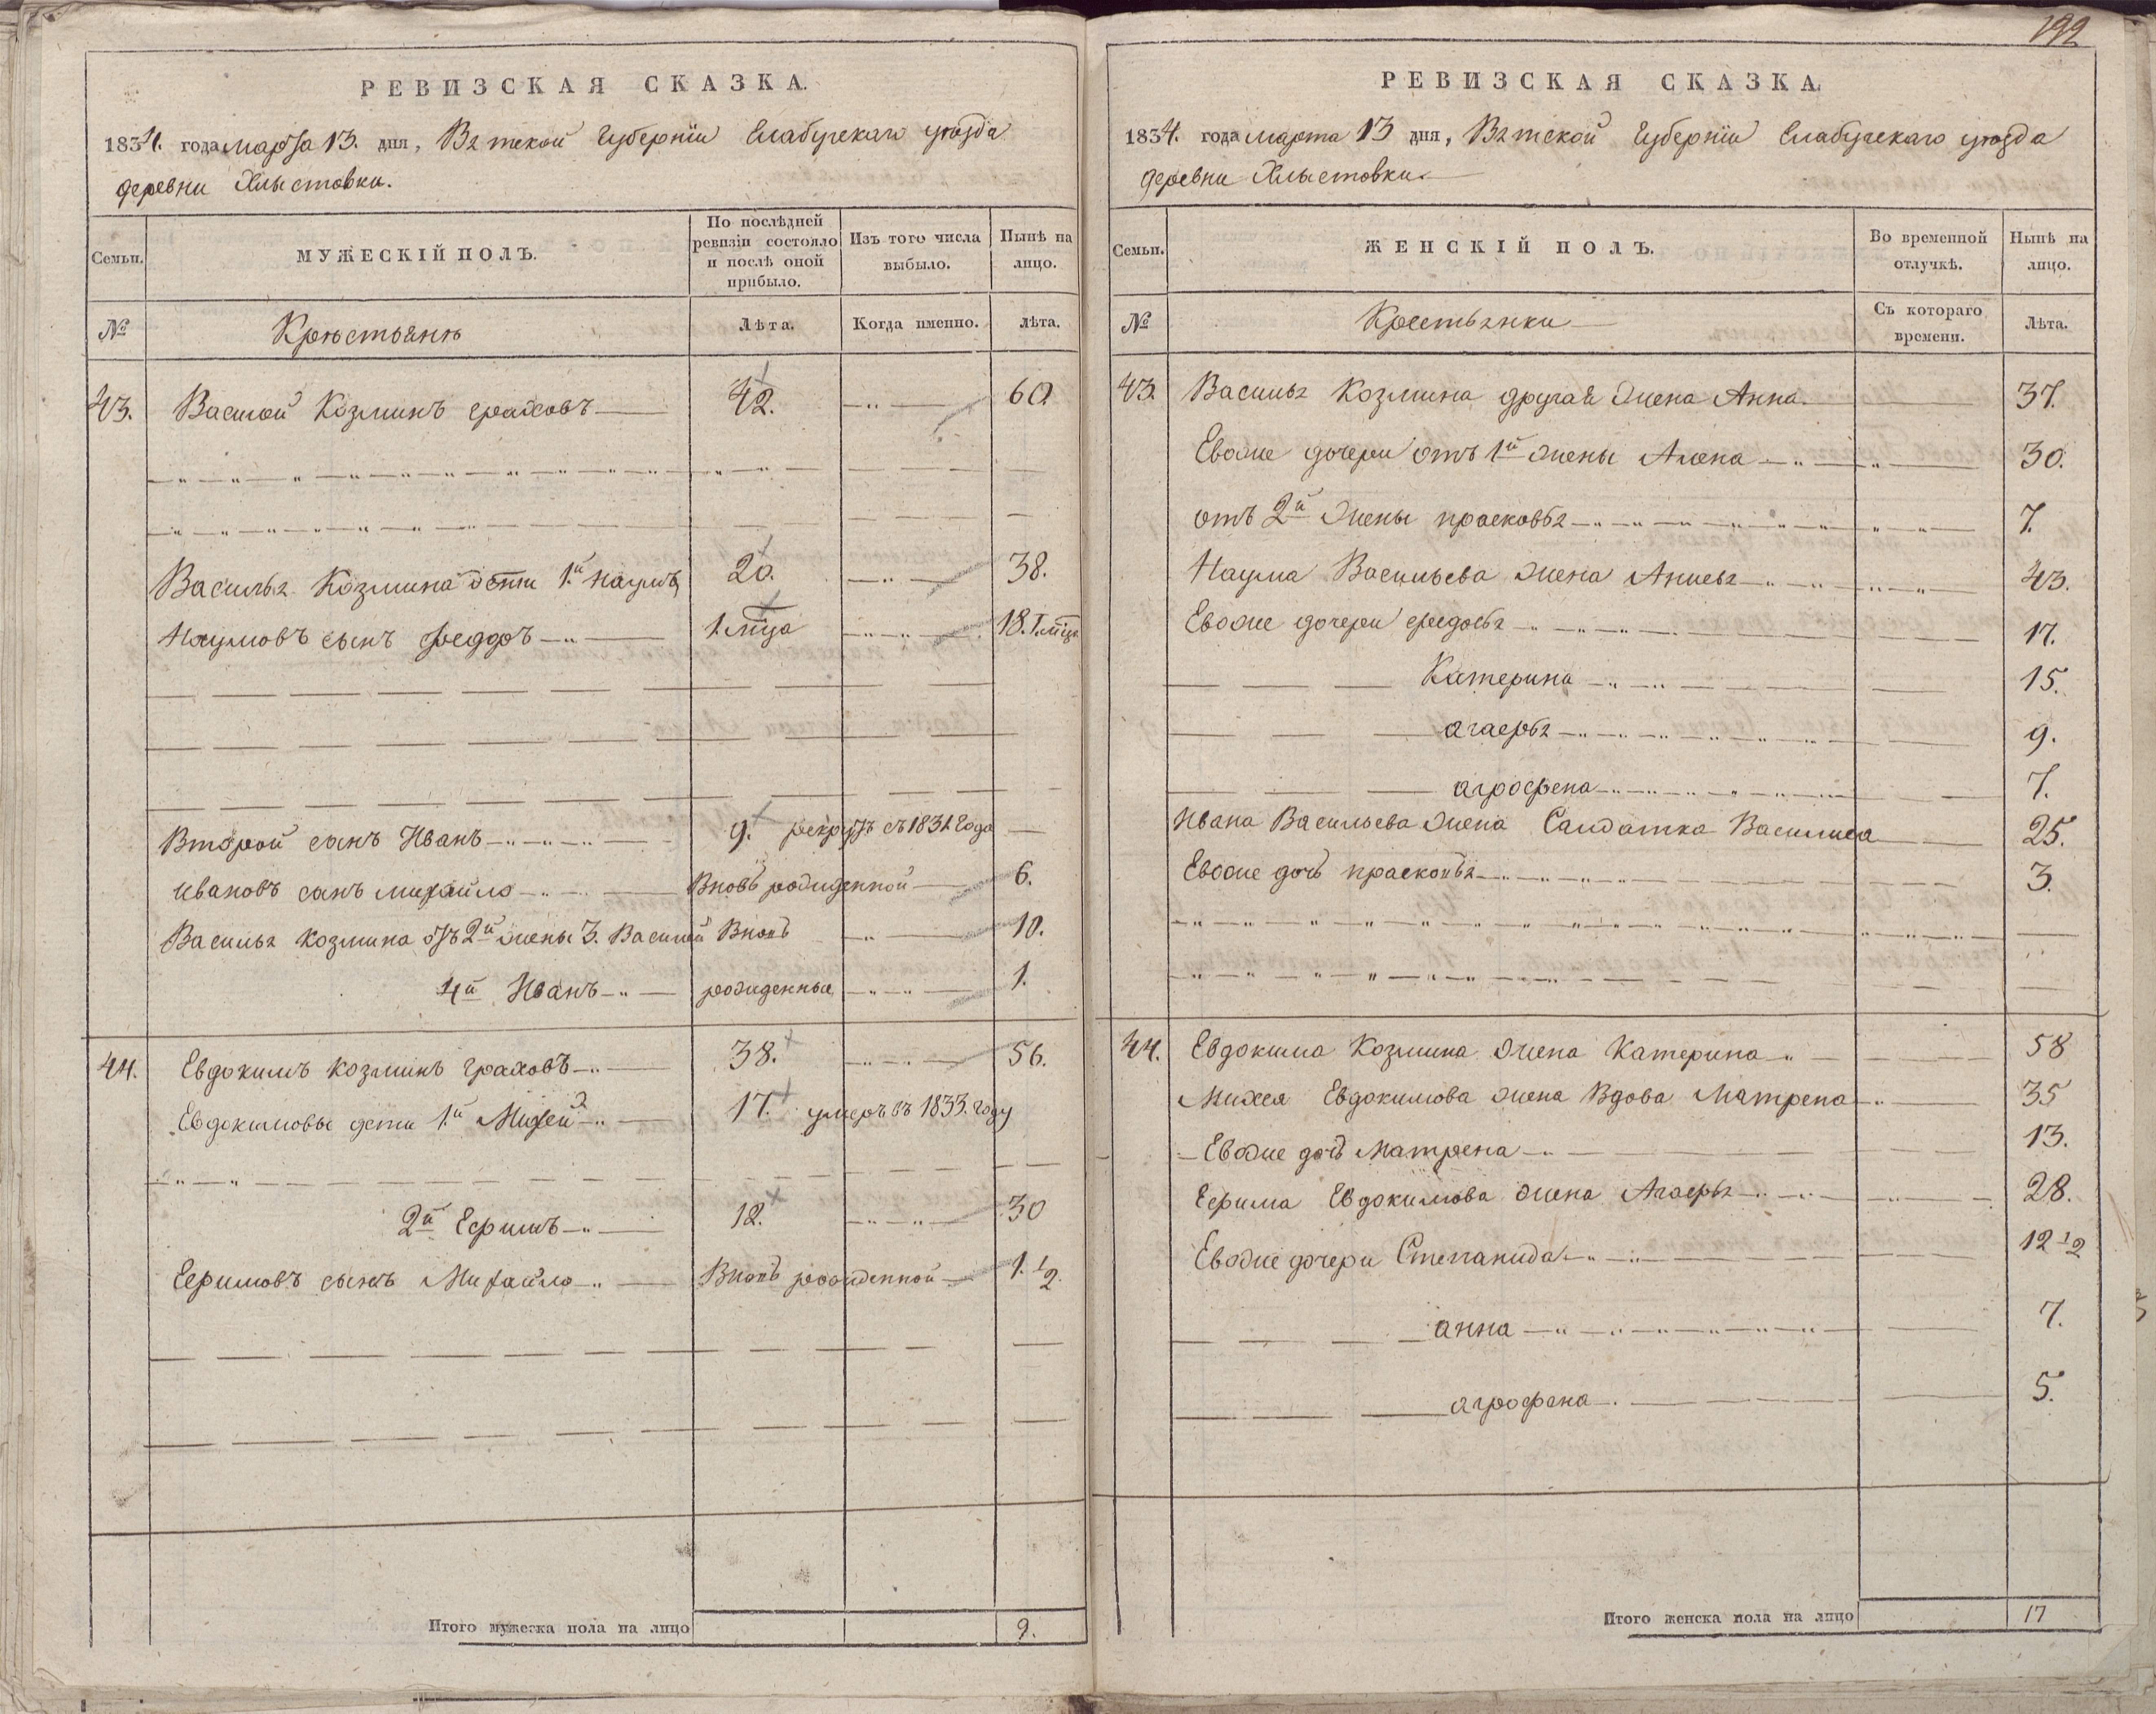 192
РЕВИЗСКАЯ СКАЗКА.
1834. года марта 13. дня, Вятской Губернїи Елабугскаго уѣзда
деревни Хлыстовки.
Семьи.
МУЖЕСКІЙ ПОЛЪ.
По послѣдней ревизіи состояло и послѣ оной прибыло.
Изъ того числа выбыло.
Нынѣ на лицо.
№
Крѣстьянѣ
Лѣта.
Когда именно.
лѣта.
43. Василей Козминъ Граховъ 42. 60
Василья Козмина дѣти 1.й Наумъ 20. 38.
Наумовъ сынъ Феддоръ 1. мца 18. 1. мца
Второй сынъ Иванъ 9. рекрутъ съ 1831 года
Ивановъ сынъ Михайло Вновь рожденной 6.
Василья Козмина отъ 2й жены 3. Василей Вновь 10.
4й Иванъ рожденные 1.
44. Евдокимъ Козминъ Граховъ 38. 56.
Евдокимовы дети 1.й Михей 17. умеръ въ 1833. году
2й Ефимъ 12. 30
Ефимовъ сынъ Михайло Вновь рожденной 1. 1/2.
Итого мужеска пола на лицо 9.
РЕВИЗСКАЯ СКАЗКА.
1834. года марта 13 дня, Вятской Губернїи Елабугскаго уѣзда
деревни Хлыстовки.
Семьи.
ЖЕНСКІЙ ПОЛЪ.
Во временной отлучкѣ.
Нынѣ на лицо.
№
Крестьянки
Съ котораго времени.
Лѣта.
43. Василья Козмина другая жена Анна. 37.
Евоже дочери отъ 1й жены Алена 30.
отъ 2й жены Прасковья 7.
Наума Васильева жена Анисья 43.
Евоже дочери Федосья 17.
Катерина 15.
Агафья 9.
Агрофена 7.
Ивана Васильева жена Салдатка Василиса 25.
Евоже дочь Прасковья 3.
44. Евдокима Козмина жена Катерина 58
Михея Евдокимова жена Вдова Матрена 35
Евоже дочь Матрена 13.
Ефима Евдокимова жена Агафья 28.
Евоже дочери Степанида 12 1/2
Анна 7.
Агрофена 5.
Итого женска пола на лицо 17